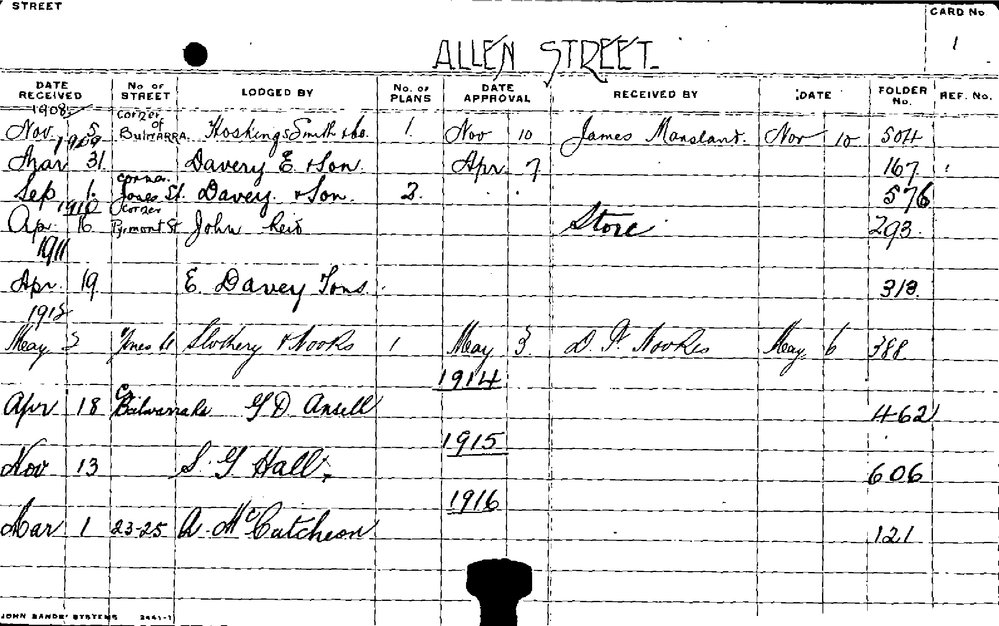 STREET
CARD No.
1
ALLEN STREET.
DATE RECEIVED No. OF STREET LODGED BY No. OF PLANS DATE APPROVAL RECEIVED BY DATE FOLDER No. REF. No.
1908
Nov. 5 corner of Bulwarra. Hoskings Smith & Co. 1. Nov 10 James Nov 10 504
1909
Mar 31 Davery E. & Son. Apr. 7 167
Sep 1. corner. Jones St. Davey. & Son. 2. 576
1910
Ap. 16 corner Pyrmont St John Reid Store 293.
1911
Apr. 19 E. Davey Sons. 318
1912
May 3 Jones St Slothery & Nooks 1 May 3. D. Nookes May 6 388
1914
Apr 18 Co Bulwarra Rd G D Ansell 462
1915
Nov 13 S. G. Hall, 606
1916
Mar 1 23-25 A. McCutcheon 121
JOHN SANDS' SYSTEMS